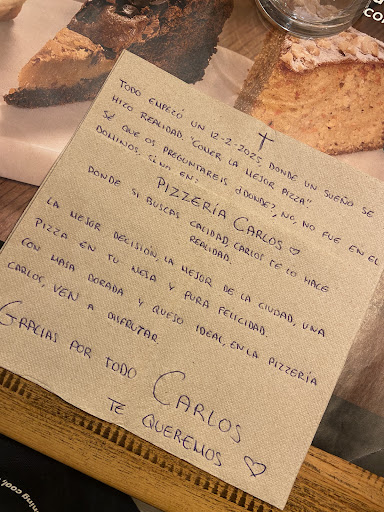 CO
TODO EMPEZÓ UN 12-2-2025, DONDE UN SUEÑO SE
HIZO REALIDAD "COMER LA MEJOR PIZZA"
SÉ QUE OS PREGUNTAREIS ¿DONDE?, NO, NO FUE EN EL
DOMINOS, SINO EN:
PIZZERÍA CARLOS ♡
DONDE SI BUSCAS CALIDAD, CARLOS TE LO HACE
REALIDAD.
LA MEJOR DECISIÓN, LA MEJOR DE LA CIUDAD, UNA
PIZZA EN TU MESA Y PURA FELICIDAD.
CON MASA DORADA Y QUESO IDEAL, EN LA PIZZERÍA
CARLOS, VEN A DISFRUTAR.
GRACIAS POR TODO CARLOS
TE QUEREMOS ♡
ning cool